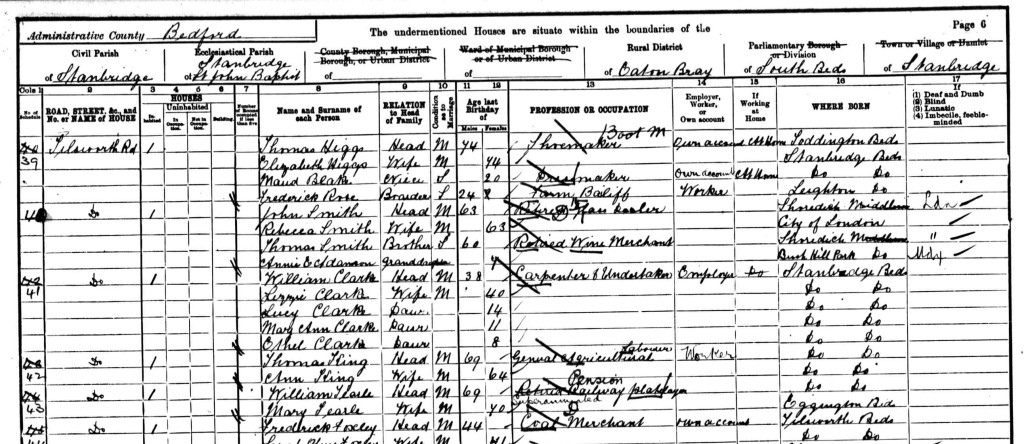 Administrative County Bedford
The undermentioned Houses are situate within the boundaries of the
Page 6
Civil Parish
of Stanbridge
Ecclesiastical Parish
Stanbridge
of St John Baptist
County Borough, Municipal Borough, or Urban District
of
Ward of Municipal Borough or of Urban District
of
Rural District
of Eaton Bray
Parliamentary Borough or Division
of South Beds
Town or Village or Hamlet
of Stanbridge
Cols 1 2 3 4 5 6 7 8 9 10 11 12 13 14 15 16 17
No. of Schedule
ROAD, STREET, &c., and No. or NAME of HOUSE
HOUSES
Inhabited
Uninhabited
In Occupation.
Not in Occupation.
Building.
Number of Rooms occupied if less than five
Name and Surname of each Person
RELATION to Head of Family
Condition as to Marriage
Age last Birthday of
Males
Females
PROFESSION OR OCCUPATION
Employer, Worker, or Own account
If Working at Home
WHERE BORN
If
(1) Deaf and Dumb
(2) Blind
(3) Lunatic
(4) Imbecile, feeble-minded
Boot M
39 Tilsworth Rd 1 Thomas Higgs Head M 74 Shoemaker Own account At Home Toddington Beds
Elizabeth Higgs Wife M 74 Stanbridge Beds
Maud Blake Niece S 20 Dressmaker Own account At Home Do Do
Frederick Rose Boarder S 24 Farm Bailiff Worker Leighton Do
Do 1 John Smith Head M 63 Retired Glass Dealer Shoredich Middlesex Ldn
Rebecca Smith Wife M 63 City of London
Thomas Smith Brother S 60 Retired Wine Merchant Shoredich Middlesex "
Annie E Adamson Granddaughter 7 Bush Hill Park Do Mdx
41 Do 1 William Clark Head M 38 Carpenter & Undertaker Employer Do Stanbridge Beds
Lizzie Clark Wife M 40 Do Do
Lucy Clark Daur 14 Do Do
Mary Ann Clark Daur 11 Do Do
Ethel Clark Daur 8 Do Do
Labourer
42 Do 1 Thomas King Head M 69 General Agricultural Worker Do Do
Ann King Wife M 64 Do Do
Pension
43 Do 1 William Tearle Head M 69 Retired Railway Platelayer Do Do
Superannuated
Mary Tearle Wife M 70 Eggington Beds
Do 1 Frederick Foxley Head M 44 Coal Merchant Own account Tilsworth Beds
Wife M 41 Do Do